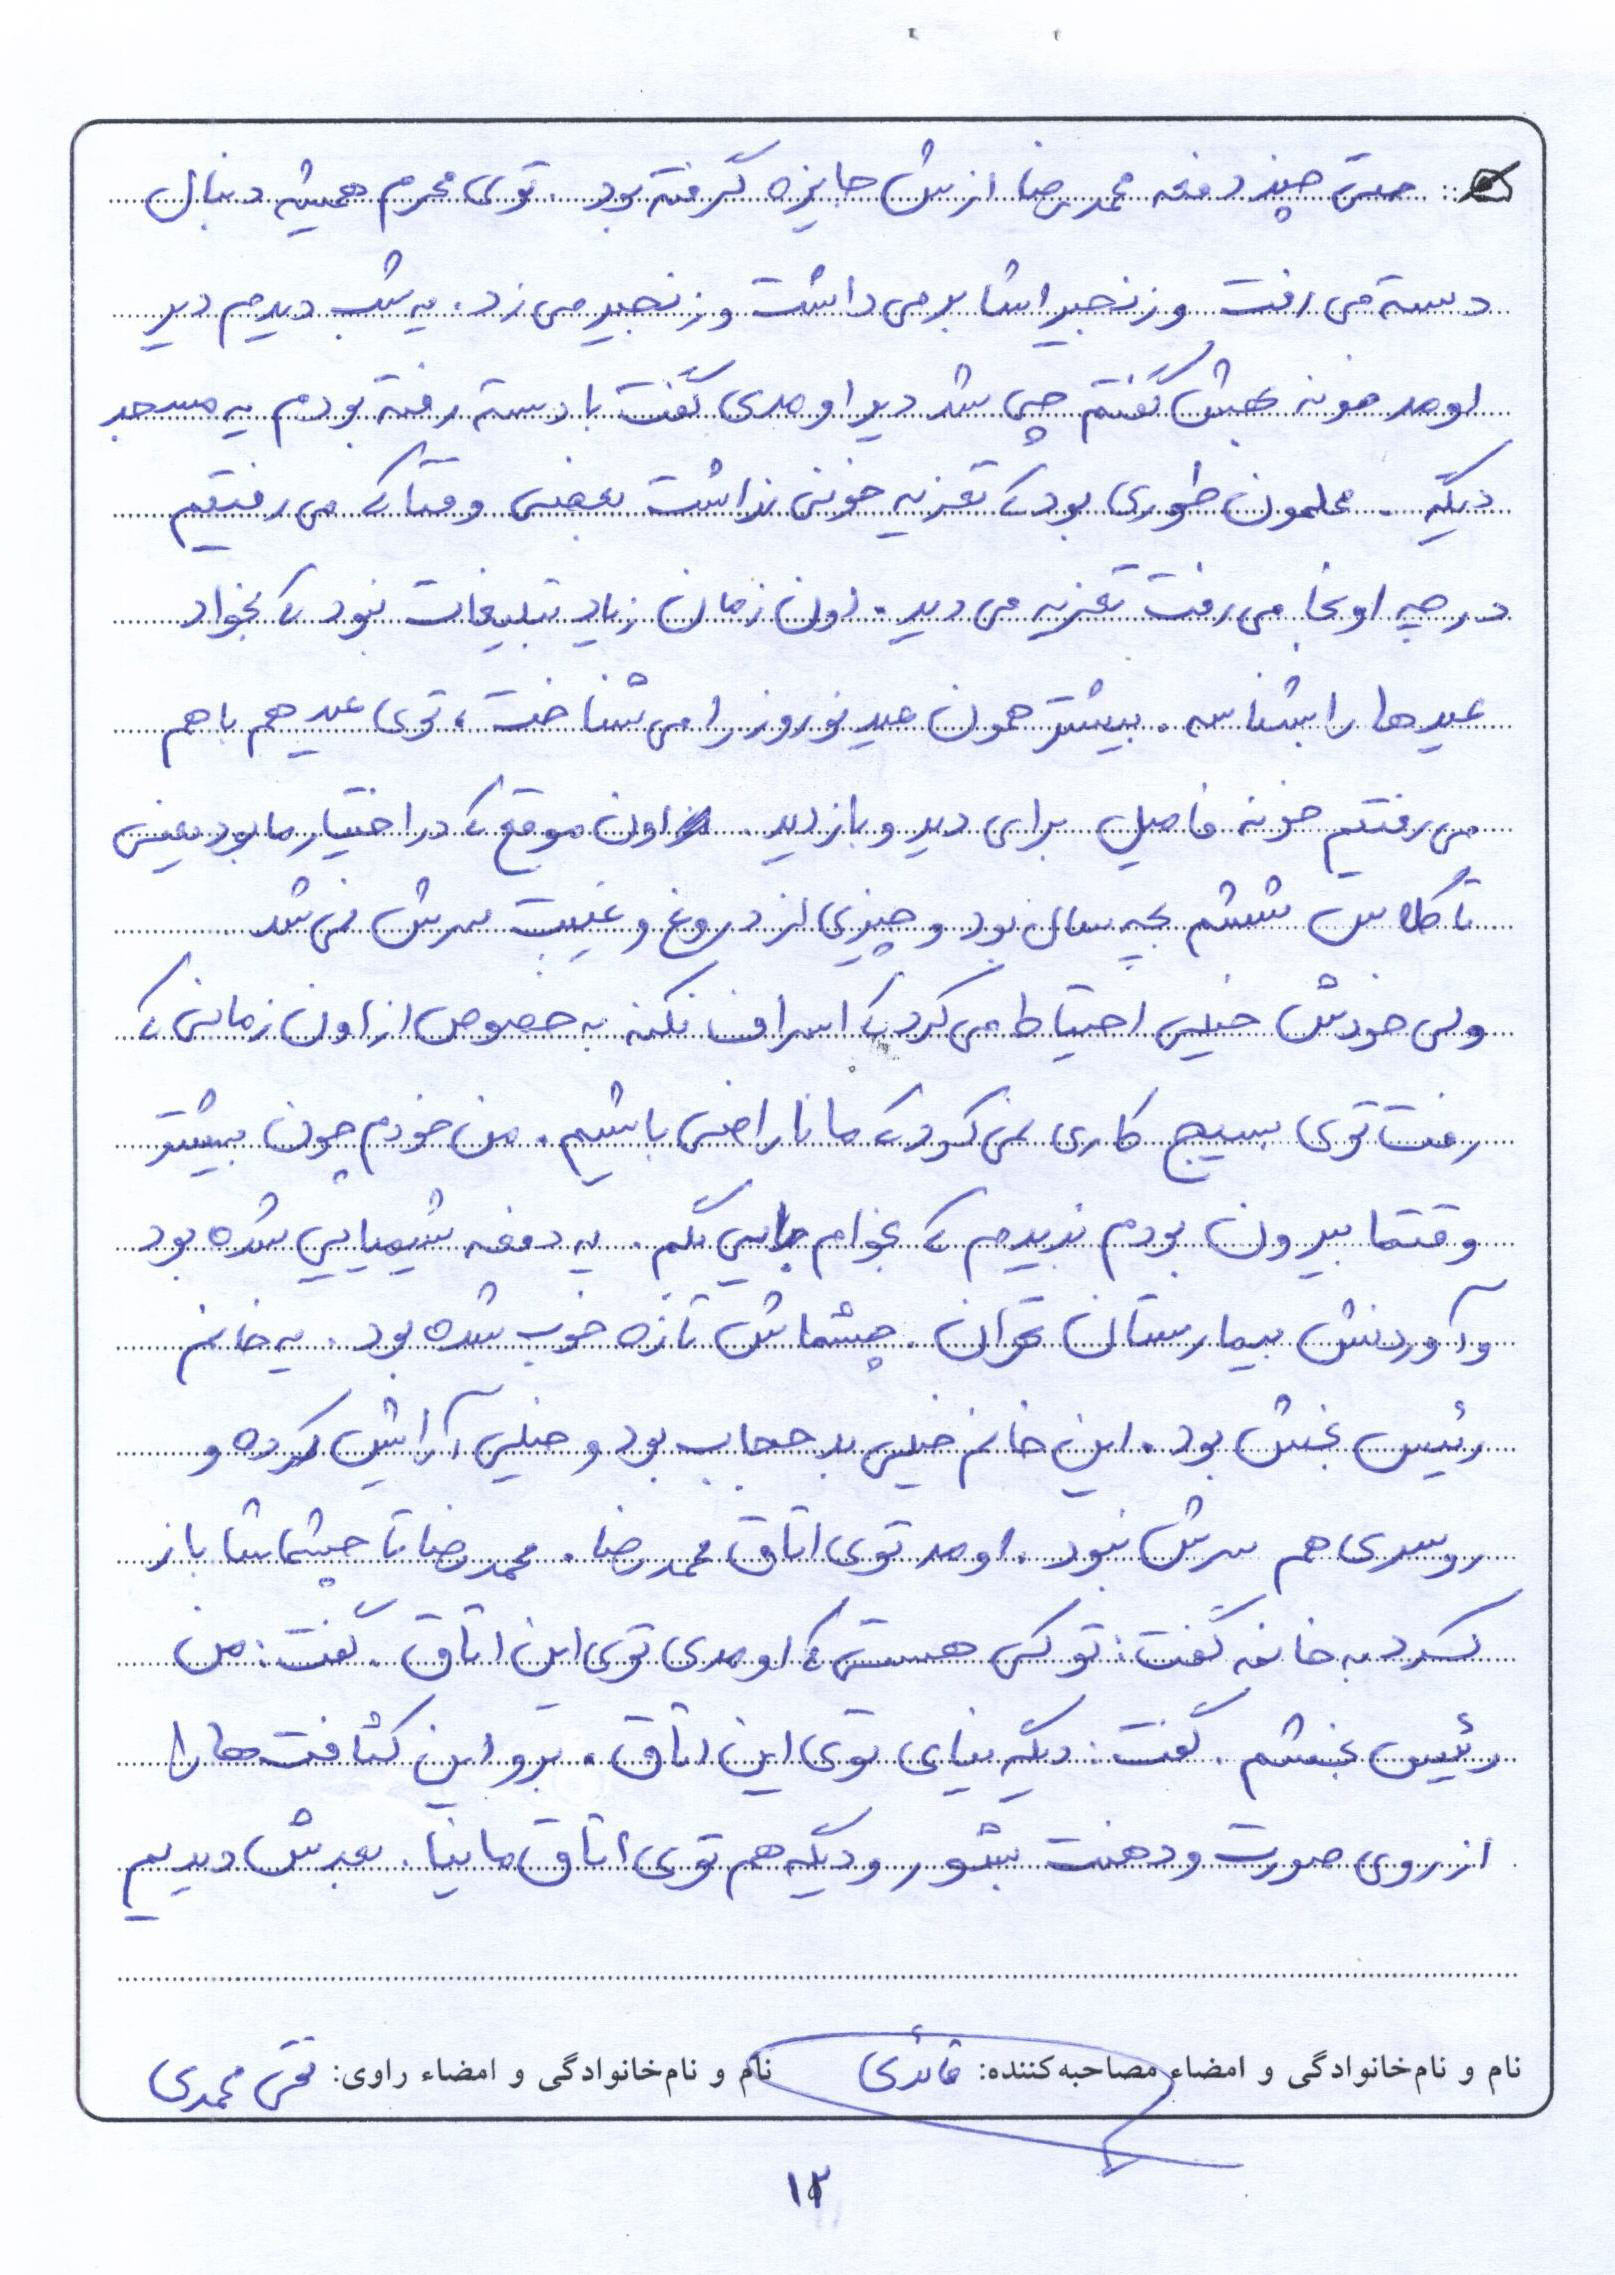 حتی چند دفعه محمدرضا ازش جایزه گرفته بود. توی محرم همیشه دنبال
دسته می رفت و زنجیراشا برمی داشت و زنجیر می زد. یه شب دیدم دیر
اومد خونه بهش گفتم چی شد دیر اومدی گفت با دسته رفته بودم یه مسجد
دیگه. محلمون طوری بود که تعزیه خونی نداشت بعضی وقتا که می رفتیم
درچه اونجا می رفت تعزیه می دید. اون زمان زیاد تبلیغات نبود که بخواد
عیدها را بشناسه. بیشتر همون عید نوروز را می شناخت، توی عید هم باهم
می رفتیم خونه فامیل برای دید و بازدید. اون موقع که در اختیار ما بود یعنی
تا کلاس ششم بچه سال بود و چیزی از دروغ و غیبت سرش نمی شد
ولی خودش خیلی احتیاط می کرد که اسراف نکنه به خصوص از اون زمانی که
رفت توی بسیج کاری نمی کرد که ما ناراضی باشیم. من خودم چون بیشتر
وقتا بیرون بودم ندیدم که بخوام بگم. یه دفعه شیمیایی شده بود
و آوردنش بیمارستان تهران. چشماش تازه خوب شده بود. یه خانم
رئیس بخش بود. این خانم خیلی بدحجاب بود و خیلی آرایش کرده و
روسری هم سرش نبود. اومد توی اتاق محمدرضا. محمدرضا تا چشماشا باز
کرد به خانمه گفت: تو کی هستی که اومدی توی این اتاق. گفت: من
رئیس بخشم. گفت: دیگه نیای توی این اتاق. برو این کثافت ها را
از روی صورت و دهنت بشور و دیگه هم توی اتاق ما نیا. بعدش دیدیم
نام و نام‌خانوادگی و امضاء مصاحبه‌کننده: قائدی نام و نام‌خانوادگی و امضاء راوی: تقی محمدی
۱۲